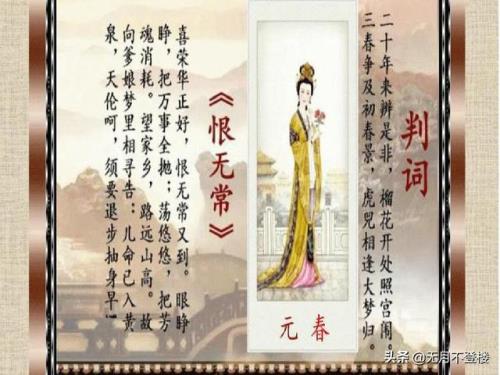 判词
二十年来辨是非，榴花开处照宫闱。
三春争及初春景，虎兕相逢大梦归。
元春
《恨无常》
喜荣华正好，恨无常又到。眼睁
睁，把万事全抛；荡悠悠，把芳
魂消耗。望家乡，路远山高。故
向爹娘梦里相寻告：儿命已入黄
泉，天伦呵，须要退步抽身早！
头条 @无月不登楼